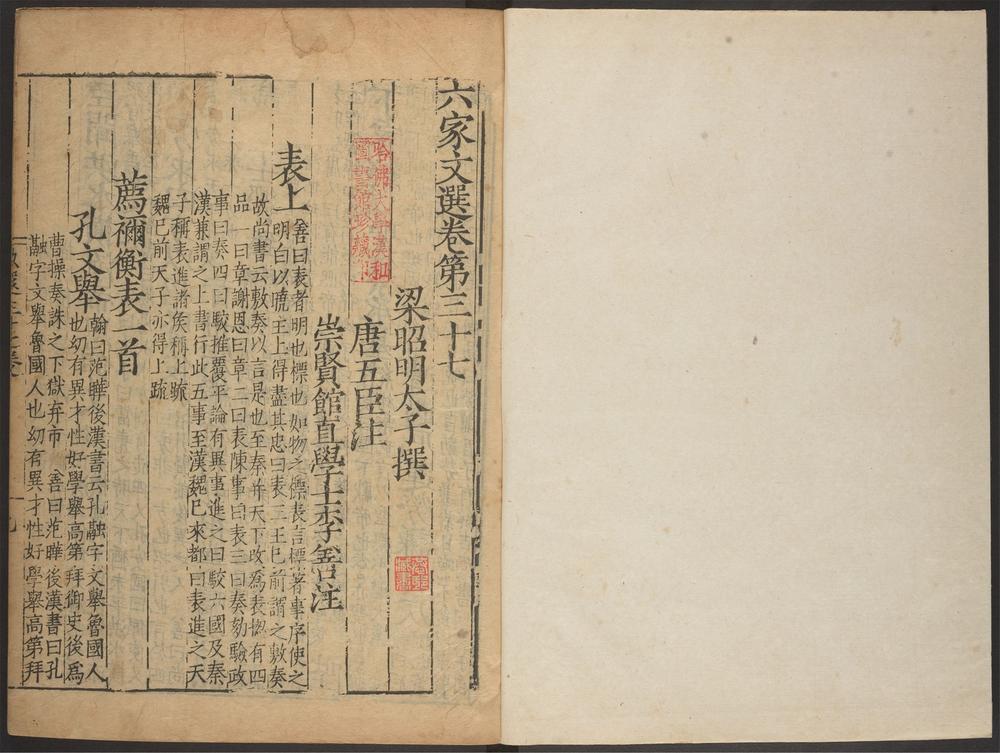 六家文選卷第三十七
梁昭明太子撰
唐五臣注
崇賢館直學士李善注
哈佛大學漢和
圖書館珍藏印
表上
善曰表者明也標也如物之標表言標著事序使之
明白以曉主上得盡其忠曰表三王已前謂之敷奏
故尚書云敷奏以言是也至秦并天下改為表揔有四
品一曰章謝恩曰章二曰表陳事曰表三曰奏劾驗政
事曰奏四曰駮推覆平論有異事進之曰駮六國及秦
漢兼謂之上書行此五事至漢魏已來都曰表進之天
子稱表進諸侯稱上䟽
魏已前天子亦得上䟽
薦禰衡表一首
孔文舉
翰曰范曄後漢書云孔融字文舉魯國人
也幼有異才性好學舉高第拜御史後為
曹操奏誅之下獄弃市 善曰范曄後漢書曰孔
融字文舉魯國人也幼有異才性好學舉高第拜